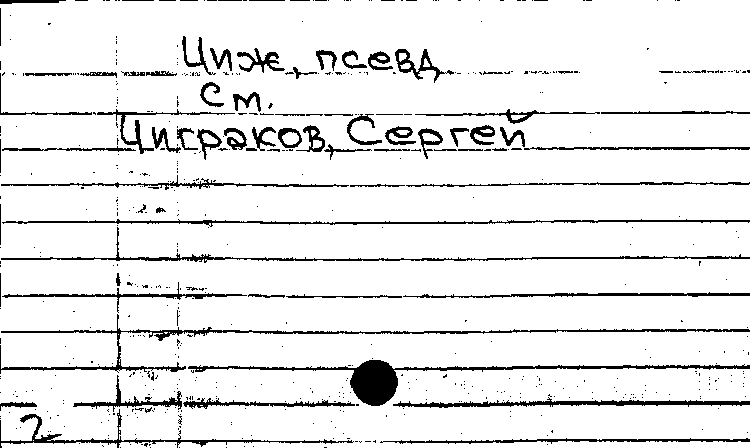 Чиж, псевд.
См.
Чиграков, Сергей
2